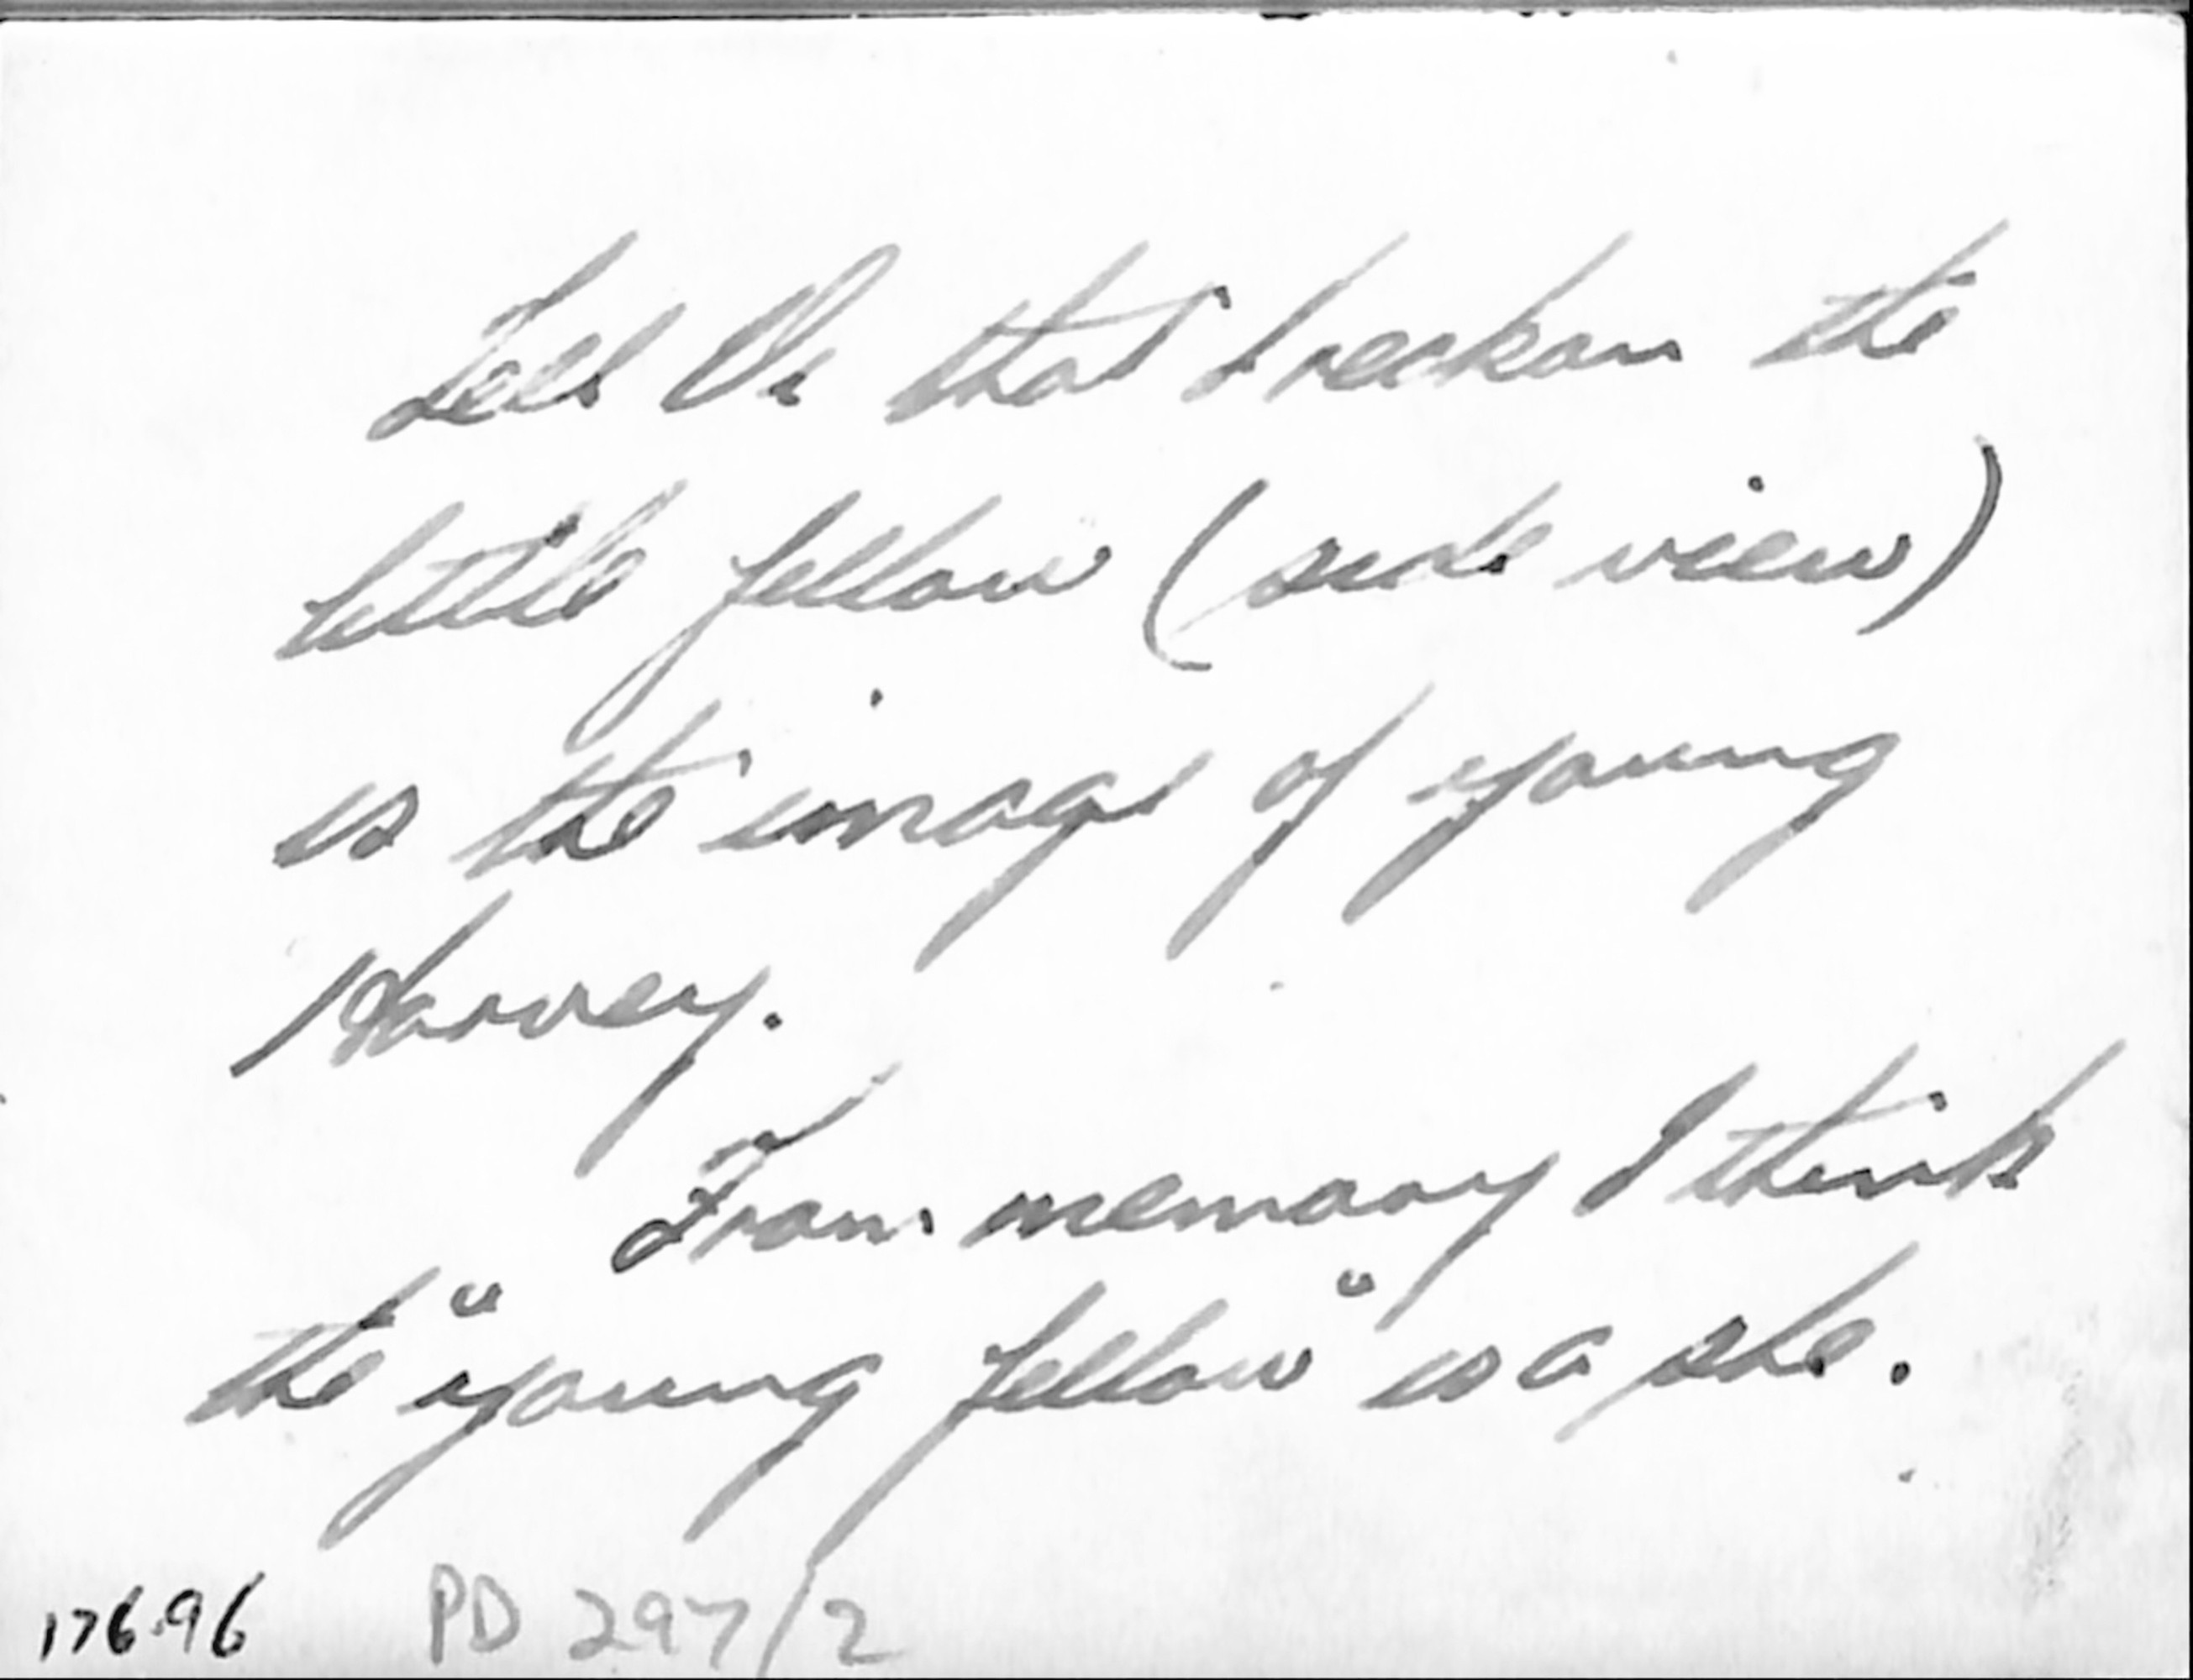 Tell that I reckon the
little fellow (side view)
is the image of young
Harvey.
From memory I think
the "young fellow" is a she.
176.96 PD 297/2